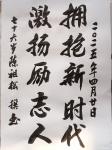 二〇二五年四月廿日
拥抱新时代
激扬励志人
七十六岁陈祖武 撰书